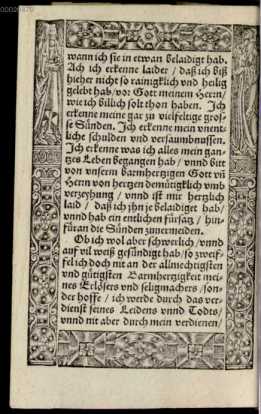 wann ich sie in etwan belaidigt hab.
Ach ich erkenne laider / daß ich biß
hieher nicht so rainigklich vnd heilig
gelebt hab / vor Gott meinem Herrn /
wie ich billich solt thon haben. Ich
erkenne meine gar zu vielfeltige gros-
se Sünden. Ich erkenne mein vnent-
liche schulden vnd versaumbnussen.
Ich erkenne was ich alles mein gan-
tzes Leben begangen hab / vnnd bitt
von vnserm barmhertzigen Gott vñ
Herrn von hertzen demütigklich vmb
verzeyhung / vnnd ist mir hertzlich
laid / daß ich jhn je belaidiget hab /
vnnd hab ein entlichen fürsatz / hin-
füran die Sünden zuuermeiden.
Ob ich wol aber schwerlich / vnnd
auf vil weiß gesündigt hab / so zweif-
fel ich doch nit an der allmechtigsten
vnd gütigsten Barmhertzigkeit mei-
nes Erlösers vnd seligmachers / son-
der hoffe / ich werde durch das ver-
dienst seines Leidens vnnd Todts /
vnnd nit aber durch mein verdienen /